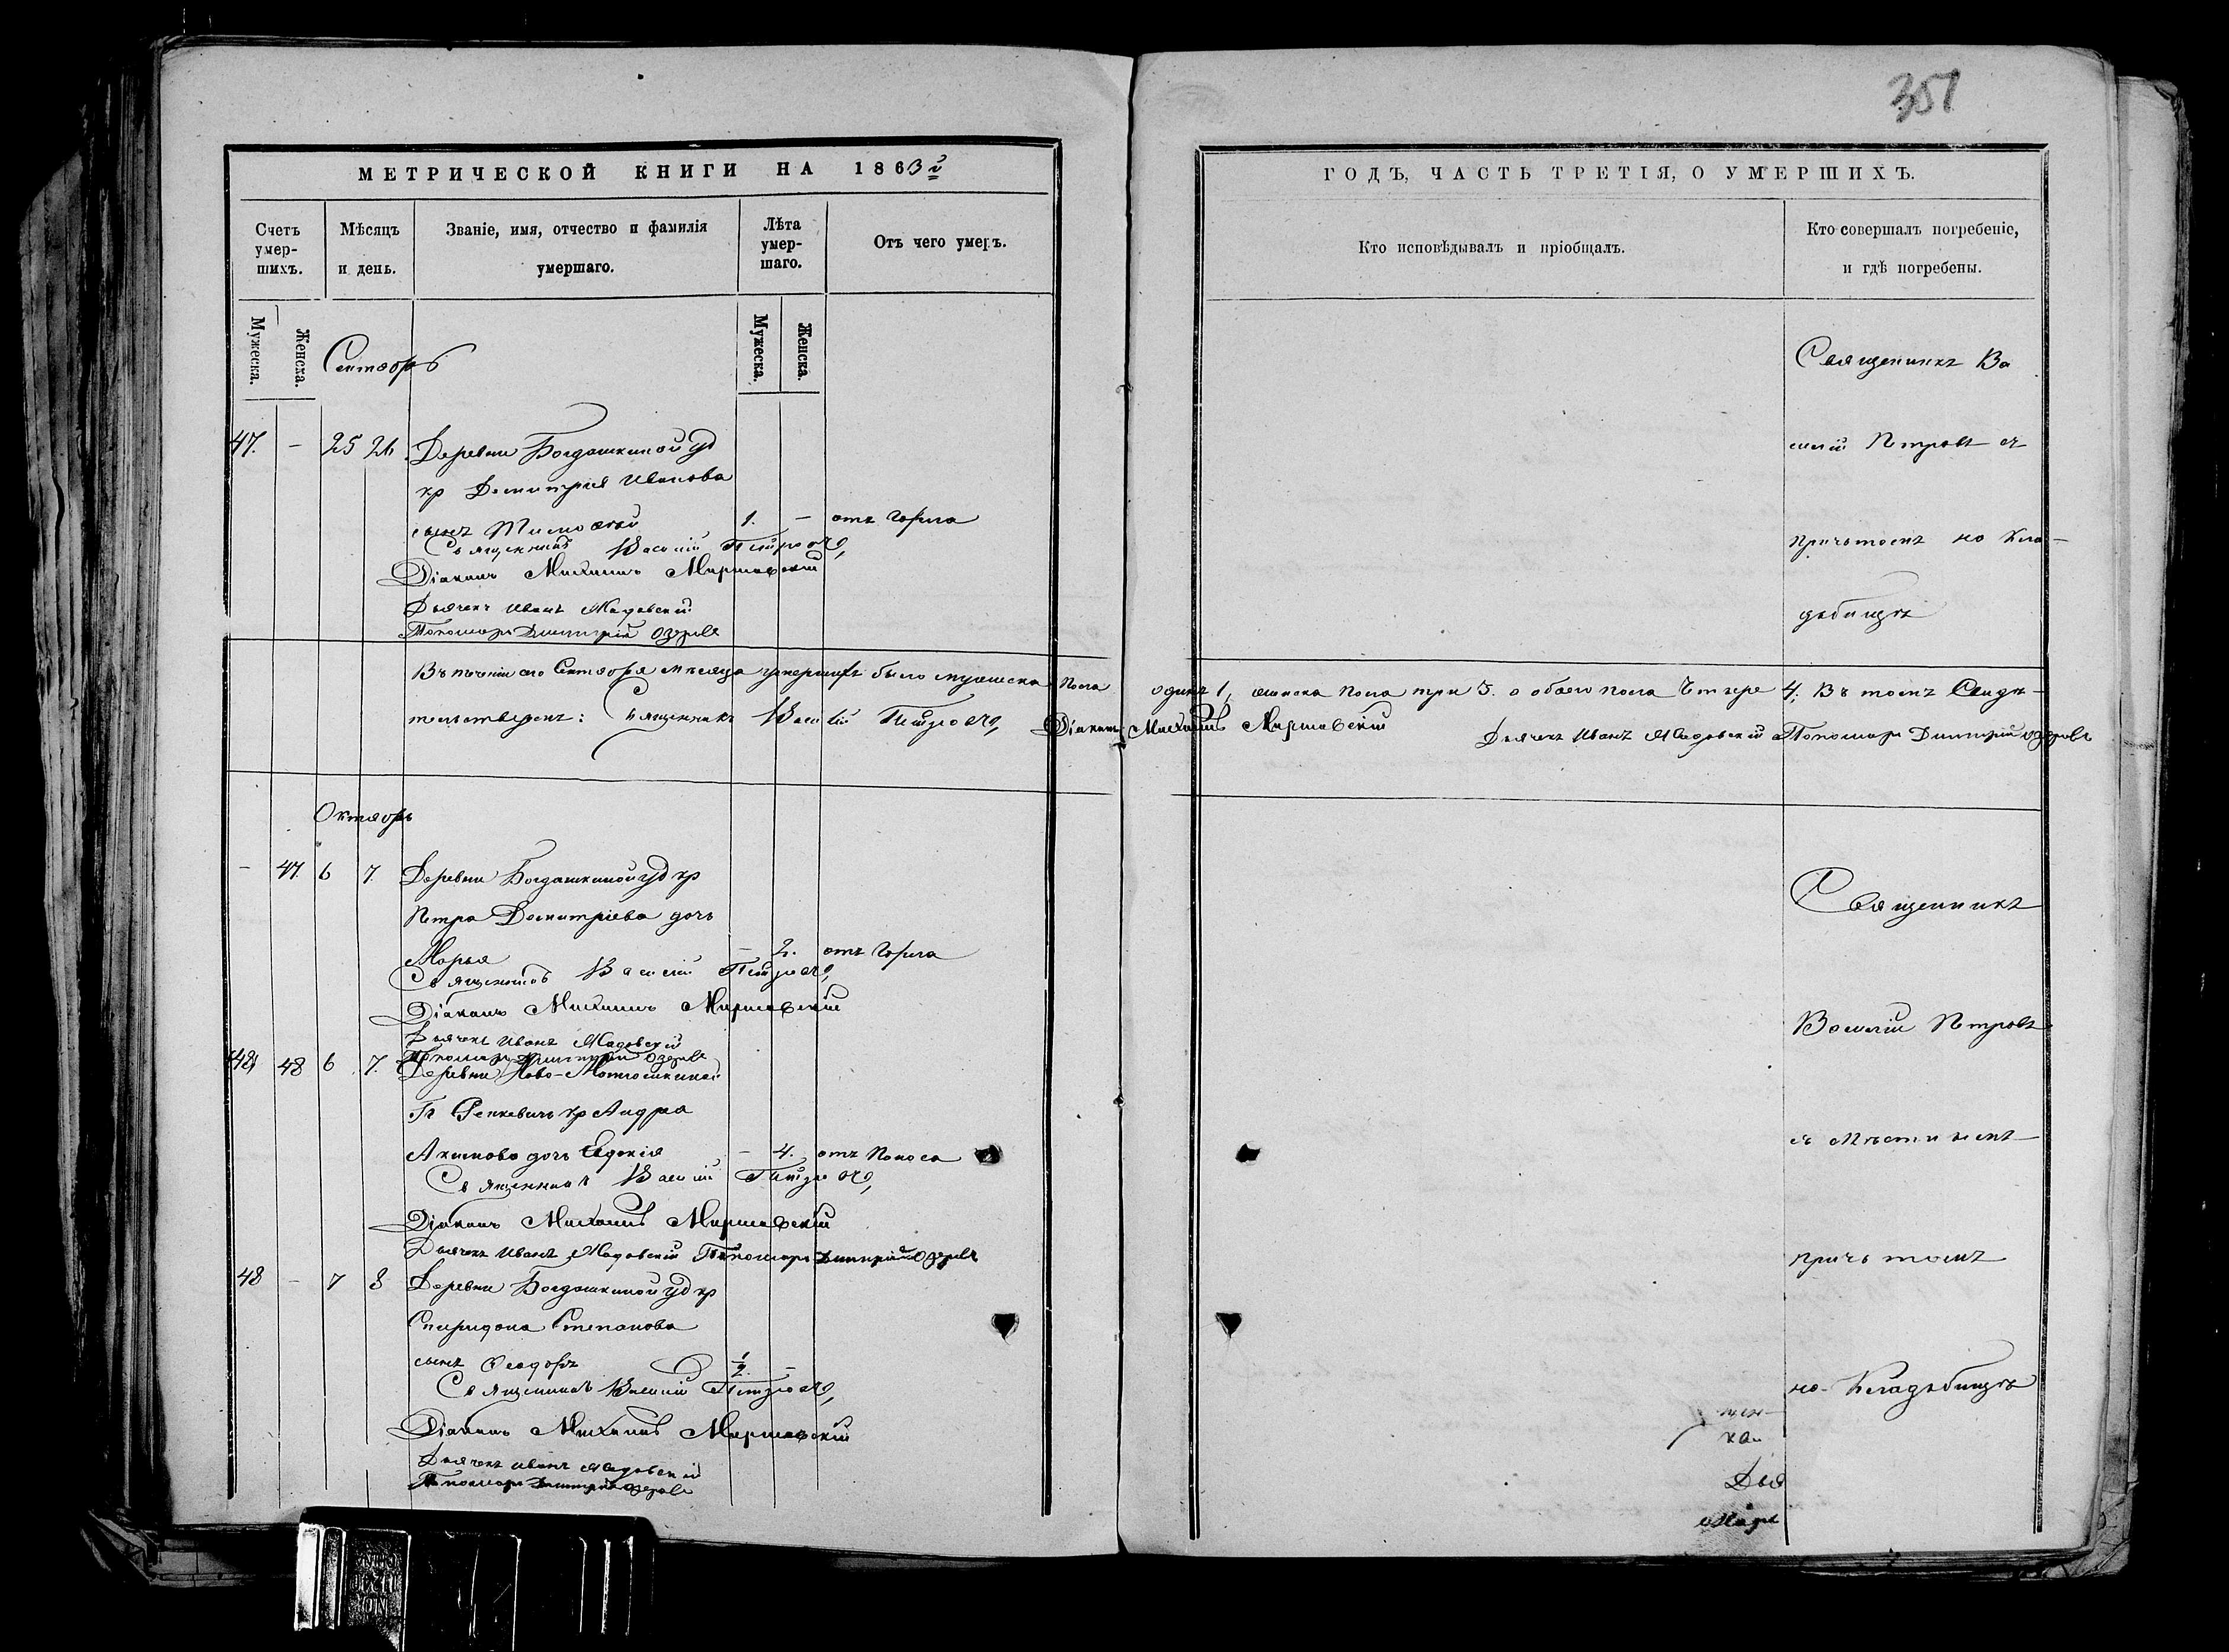 351
МЕТРИЧЕСКОЙ КНИГИ НА 1863й
Счетъ умер-шихъ.
Мѣсяцъ и день.
Званіе, имя, отчество и фамилія умершаго.
Лѣта умер-шаго.
Отъ чего умеръ.
Мужеска.
Женска.
Мужеска.
Женска.
Сентябрь
47. — 25 26 Деревни Богдашкиной уд
кр Димитрія Иванова
сынъ Тимофей 1. — отъ горла
Священникъ Василій Петровъ,
Діаконъ Михаилъ
Дьячекъ Иванъ
Пономарь Димитрій Озеровъ
Въ теченіи сего Сентября мѣсяца умершихъ было мужеска пола
тельствуемъ: Священникъ Василій Петровъ,
Октябрь
— 47. 6 7. Деревни Богдашкиной уд кр
Петра Димитріева дочь
Марья — 2. отъ горла
Священникъ Василій Петровъ,
Діаконъ Михаилъ
Дьячекъ Иванъ
Пономарь Димитрій Озеровъ
48 6 7. Деревни Ново-Матюшкиной
кр Андрея
Акимова дочь Евдокія — 4. отъ поноса
Священникъ Василій Петровъ,
Діаконъ Михаилъ
Дьячекъ Иванъ Пономарь Димитрій Озеровъ
48 — 7 8 Деревни Богдашкиной уд кр
Спиридона Степанова
сынъ Феодоръ 1/2 —
Священникъ Василій Петровъ,
Діаконъ Михаилъ
Дьячекъ Иванъ
Пономарь Димитрій Озеровъ
ГОДЪ, ЧАСТЬ ТРЕТІЯ, О УМЕРШИХЪ.
Кто исповѣдывалъ и пріобщалъ.
Кто совершалъ погребеніе,
и гдѣ погребены.
Священникъ Ва
силій Петровъ съ
причтомъ на кла-
дбищѣ
одинъ 1, женска пола три 3. а обоего пола четыре 4. Въ томъ свидѣ-
Діаконъ Михаилъ Дьячекъ Иванъ Пономарь Димитрій Озеровъ
Священникъ
Василій Петровъ
съ мѣстнымъ
причтомъ
на кладбищѣ